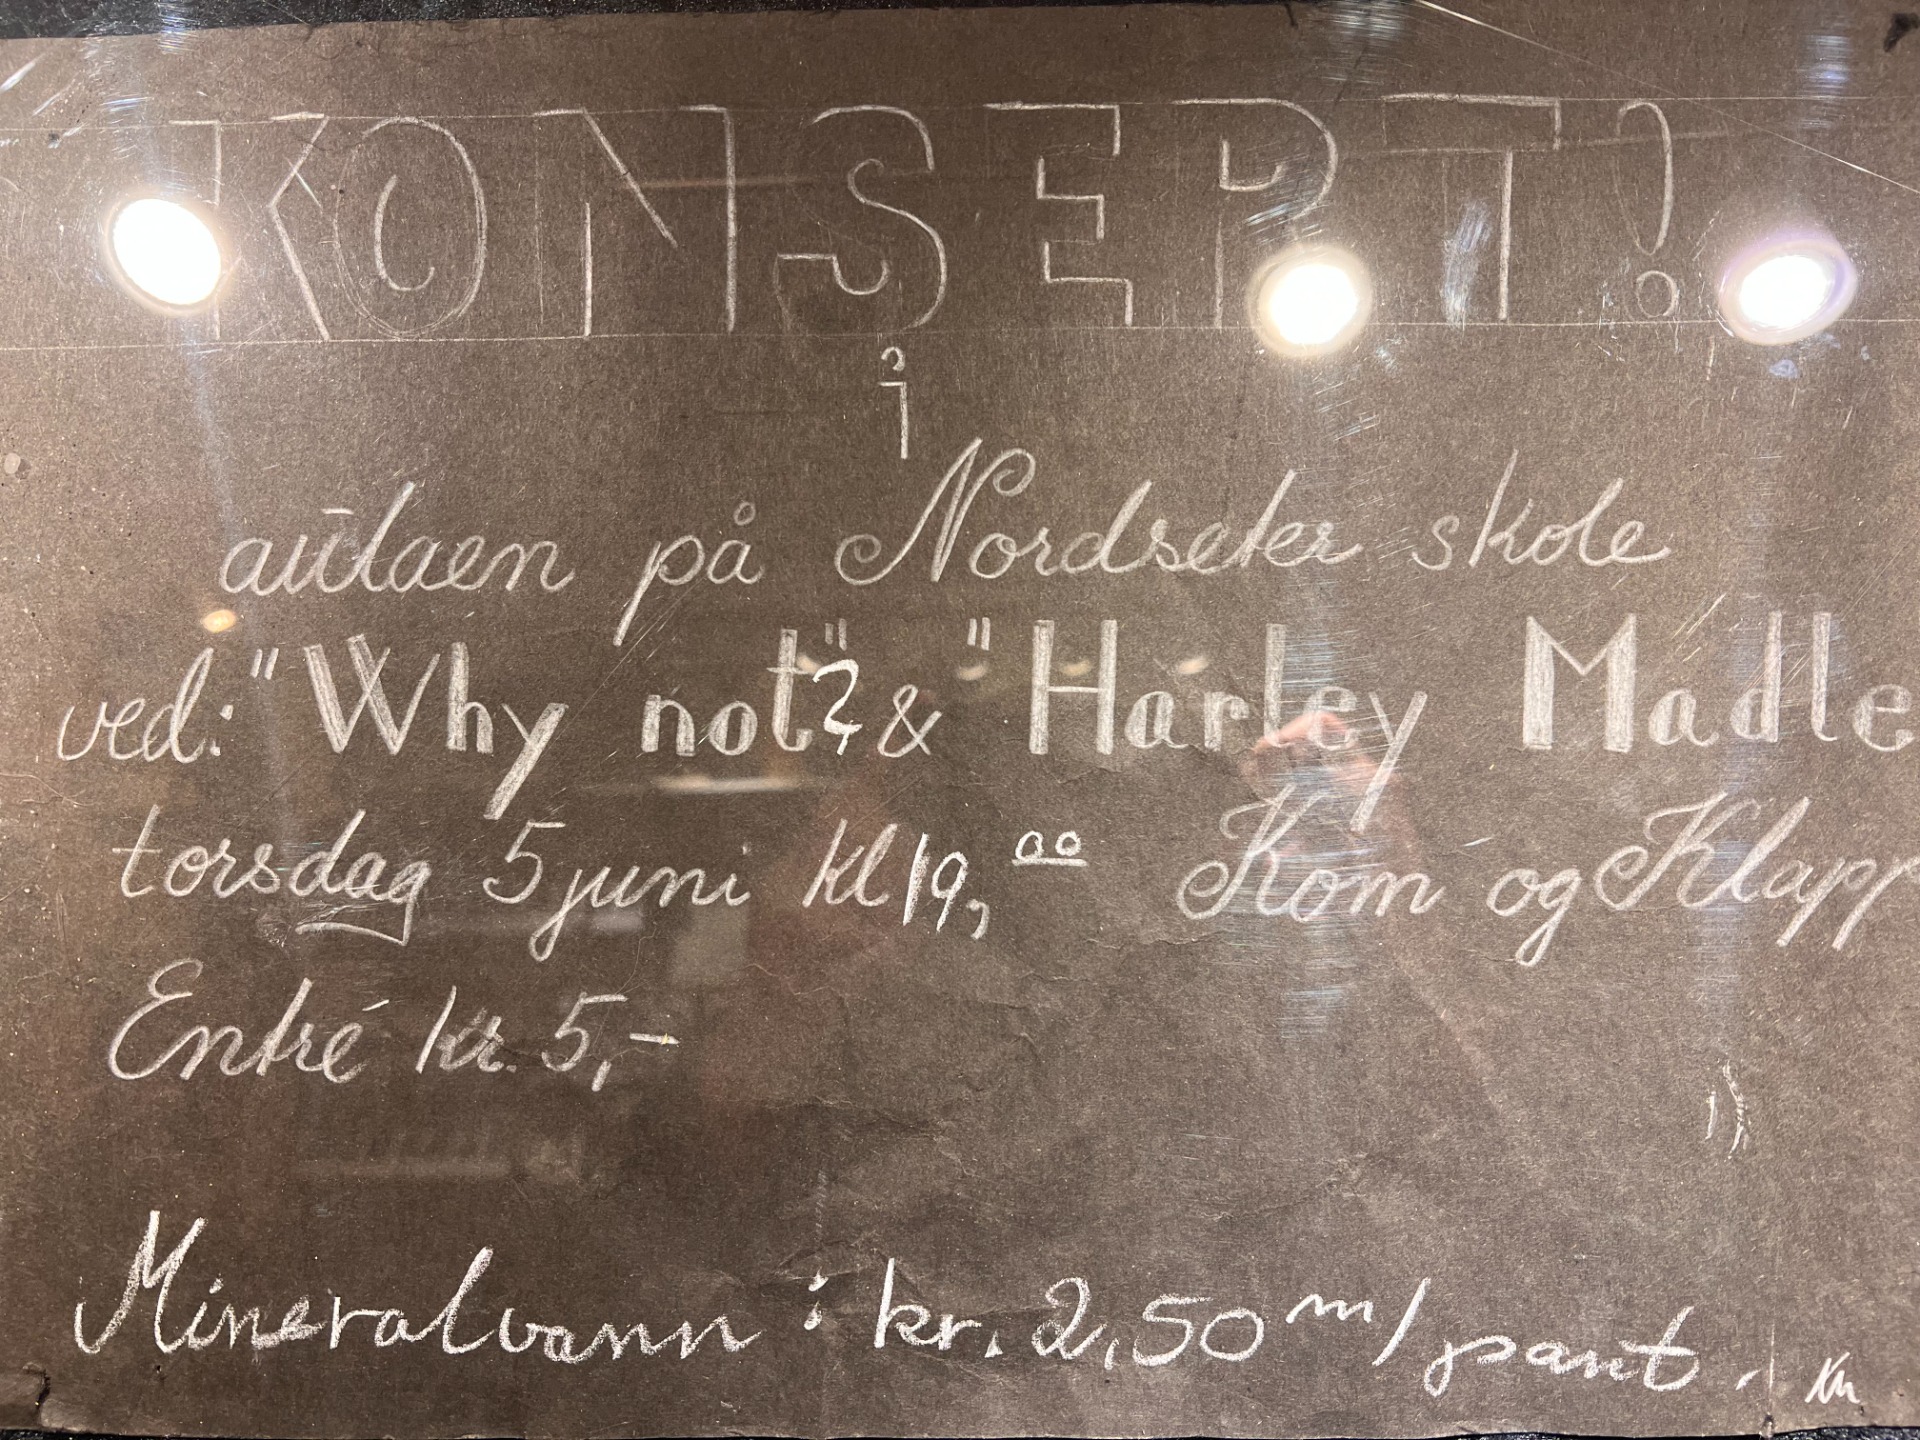 KONSERT!
i
aulaen på Nordseter skole
ved: "Why not"? & "Harley Madle
torsdag 5 juni kl 19,00 Kom og Klapp
Entré kr. 5,-
Mineralvann: kr. 2,50 m/pant.